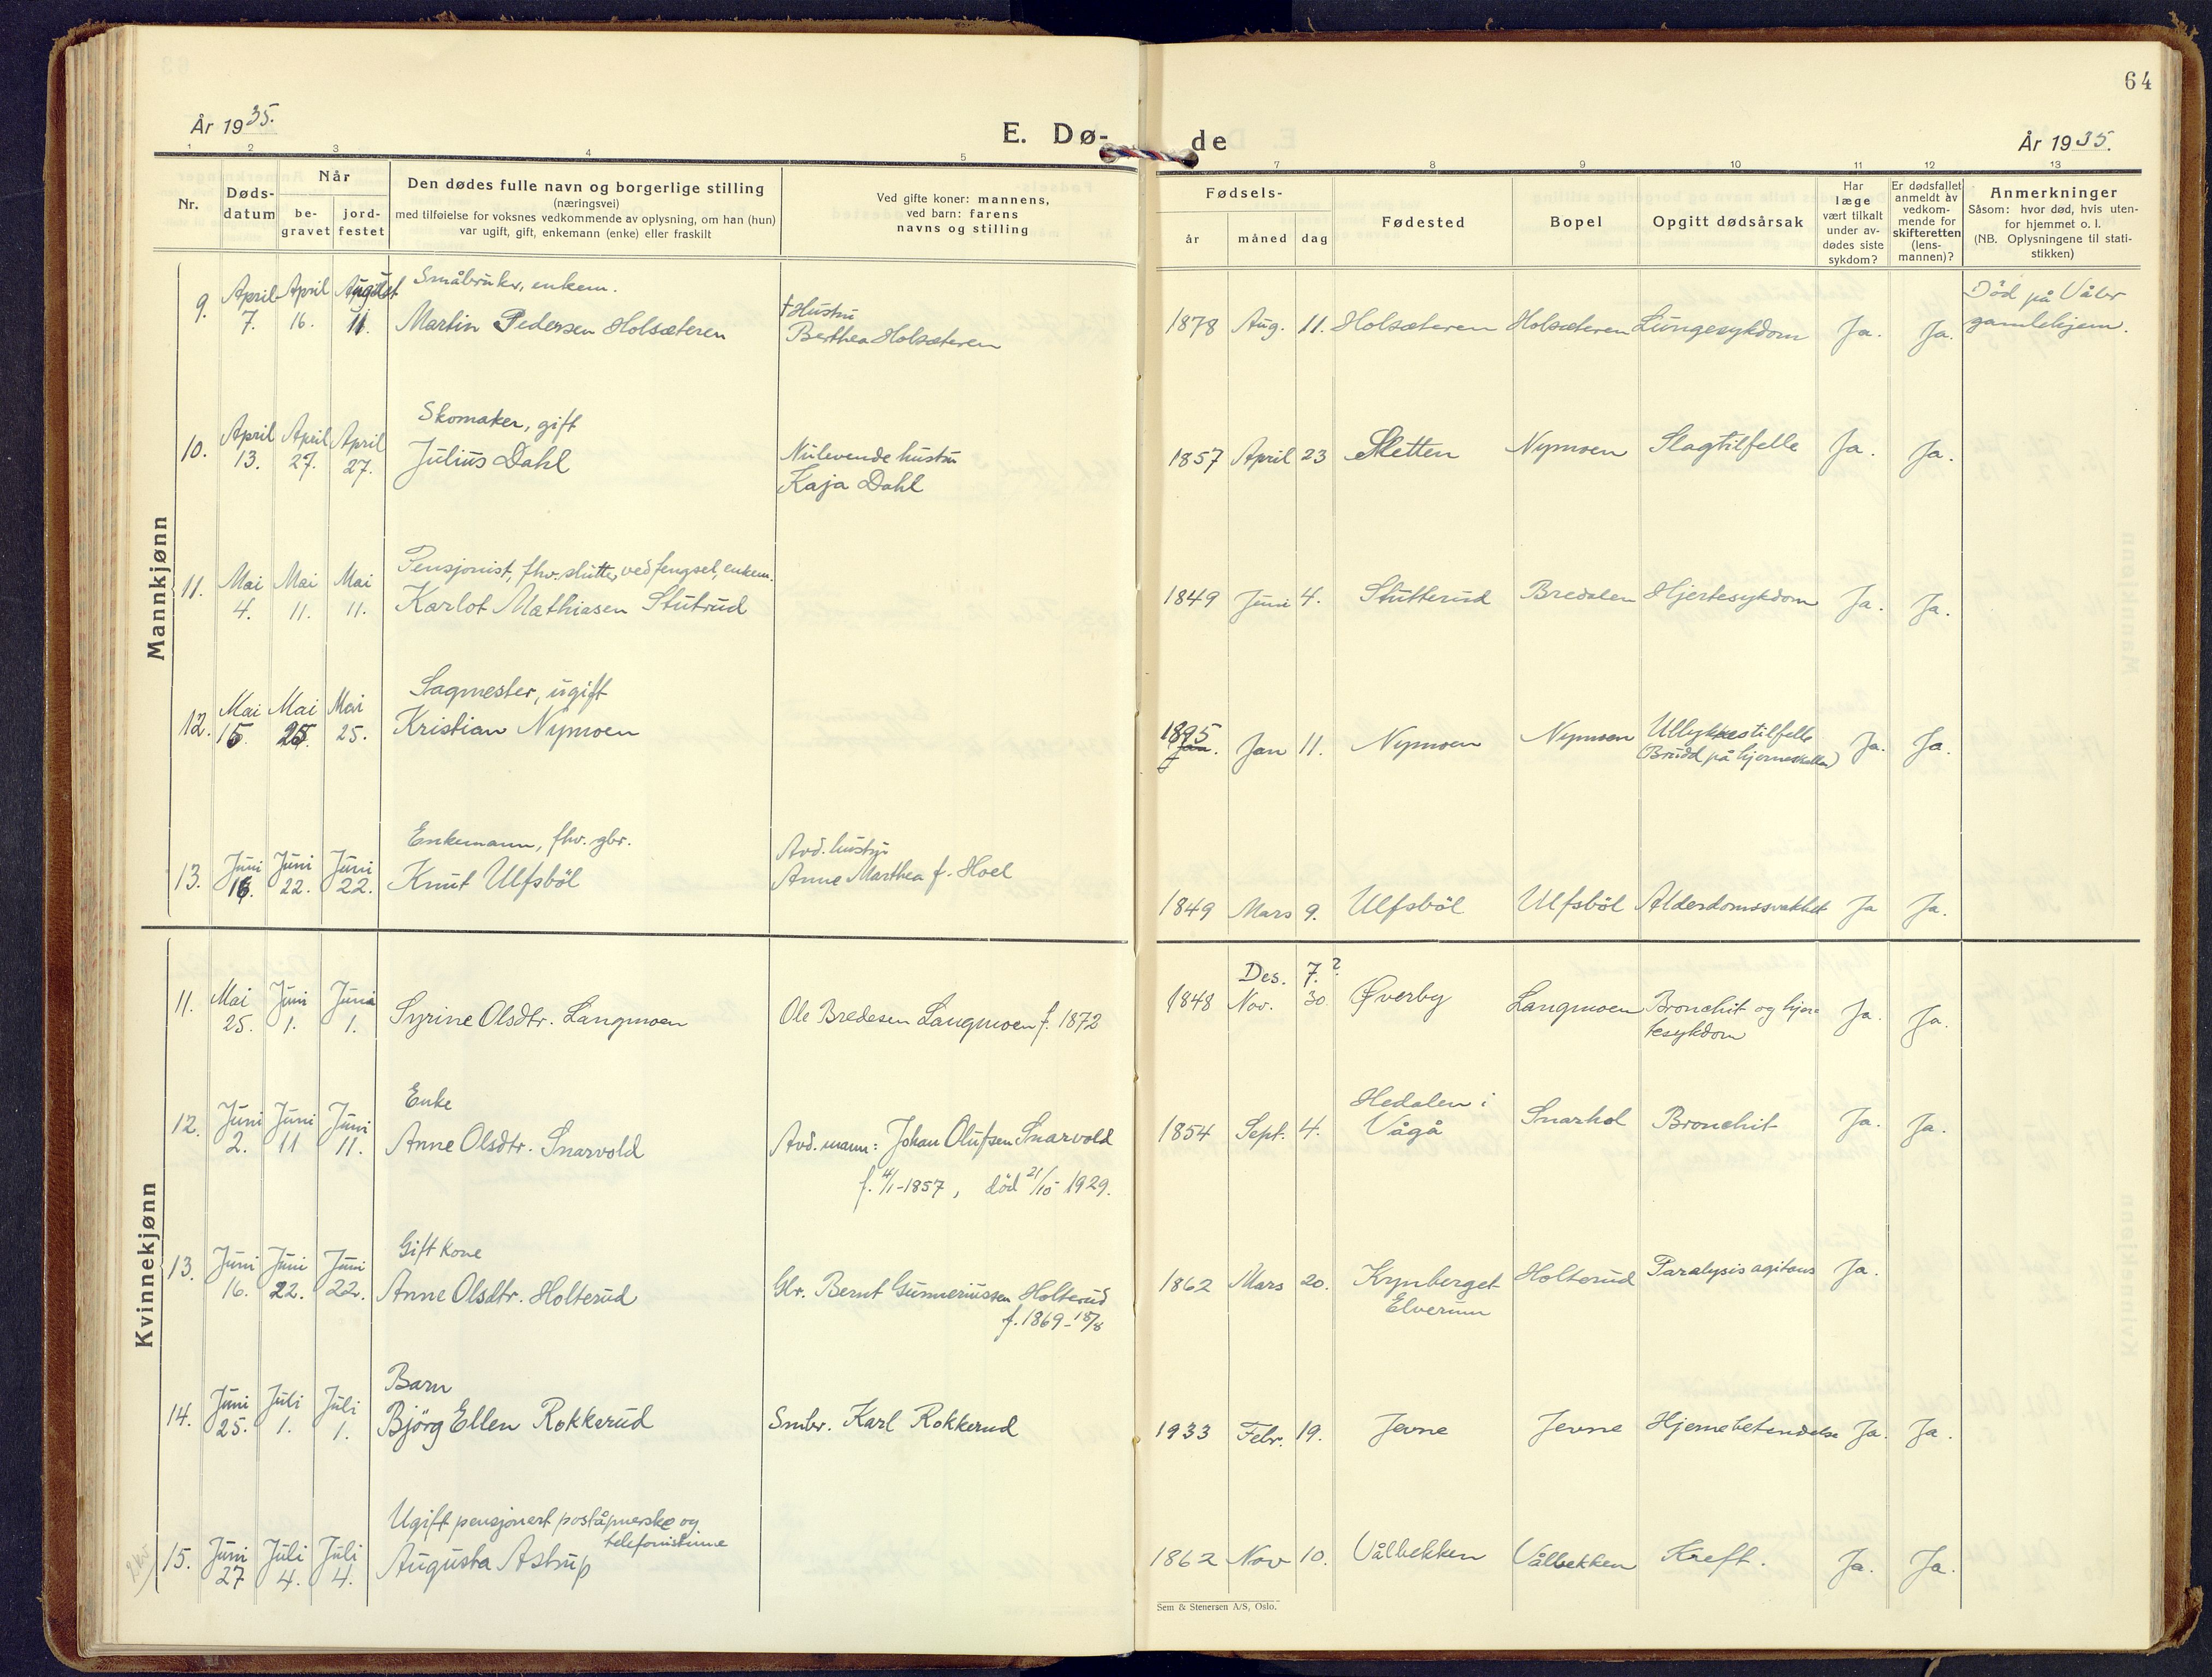 64
År 1935.
E. Dø-
de
År 1935.
1 2 3 4 5 7 8 9 10 11 12 13
Nr.
Døds-
datum
Når
be-
gravet
jord-
festet
Den dødes fulle navn og borgerlige stilling
(næringsvei)
med tilføielse for voksnes vedkommende av oplysning, om han (hun)
var ugift, gift, enkemann (enke) eller fraskilt
Ved gifte koner: mannens,
ved barn: farens
navns og stilling
Fødsels-
år måned dag
Fødested
Bopel
Opgitt dødsårsak
Har
læge
vært tilkalt
under av-
dødes siste
sykdom?
Er dødsfallet
anmeldt av
vedkom-
mende for
skifteretten
(lens-
mannen)?
Anmerkninger
Såsom: hvor død, hvis uten-
for hjemmet o. l.
(NB. Oplysningene til stati-
stikken)
Mannkjønn
Småbruker, enkem.
9. April 7. April 16. August 11. Martin Pedersen Holsæteren
† Hustru
Berthea Holsæteren
1878 Aug. 11. Holsæteren Holsæteren Lungesykdom Ja. Ja.
Død på Våler
gamlehjem.
Skomaker, gift
10. April 13. April 27. April 27. Julius Dahl
Nulevende hustru
Kaja Dahl
1857 April 23 Sletten Nymoen Slagtilfelle Ja. Ja.
Pensjonist, fhv. slutter ved fengsel, enkem.
11. Mai 4. Mai 11. Mai 11. Karlot Mathiasen Stutrud
1849 Juni 4. Stutterud Bredalen Hjertesykdom Ja. Ja.
Sagmester, ugift
12. Mai 15. Mai 25. Mai 25. Kristian Nymoen
1895 Jan. Jan 11. Nymoen Nymoen Ullykkestilfelle
(Brudd på hjerneskallen) Ja. Ja.
Enkemann, fhv. gbr.
13. Juni 16. Juni 22. Juni 22. Knut Ulfsböl
Avd. hustru
Anne Marthea f. Hoel
1849 Mars 9. Ulfsböl Ulfsböl Alderdomssvakhet Ja Ja.
Kvinnekjønn
11. Mai 25. Juni 1. Juni 1. Syrine Olsdtr. Langmoen
Ole Bredesen Langmoen f. 1872
Des. 7.?
1848 Nov. 30. Øverby Langmoen Bronchit og hjer-
tesykdom Ja. Ja.
Enke
12. Juni 2. Juni 11 Juni 11. Anne Olsdtr. Snarvold
Avd. mann: Johan Olufsen Snarvold
f. 4/1-1857, död 21/10 1929.
1854 Sept. 4. Hedalen i
Vågå Snarhol Bronchit Ja. Ja.
Gift kone
13. Juni 16. Juni 22. Juni 22. Anne Olsdtr. Holterud
Gbr. Bernt Gunneriussen Holterud
f. 1869-18/8
1862 Mars 20. Kynberget
Elverum Holterud Paralysis agitans Ja.
Barn
14. Juni 25. Juli 1. Juli 1. Björg Ellen Rokkerud
Smbr. Karl Rokkerud
1933 Febr. 19. Jevne Jevne Hjernebetendelse Ja. Ja.
Ugift pensjonert poståpnerske og
telefonistinne
15. Juni 27 Juli 4. Juli 4. Augusta Astrup
1862 Nov 10. Vålbekken Vålbekken Kreft. Ja. Ja.
Sem & Stenersen A/S, Oslo.